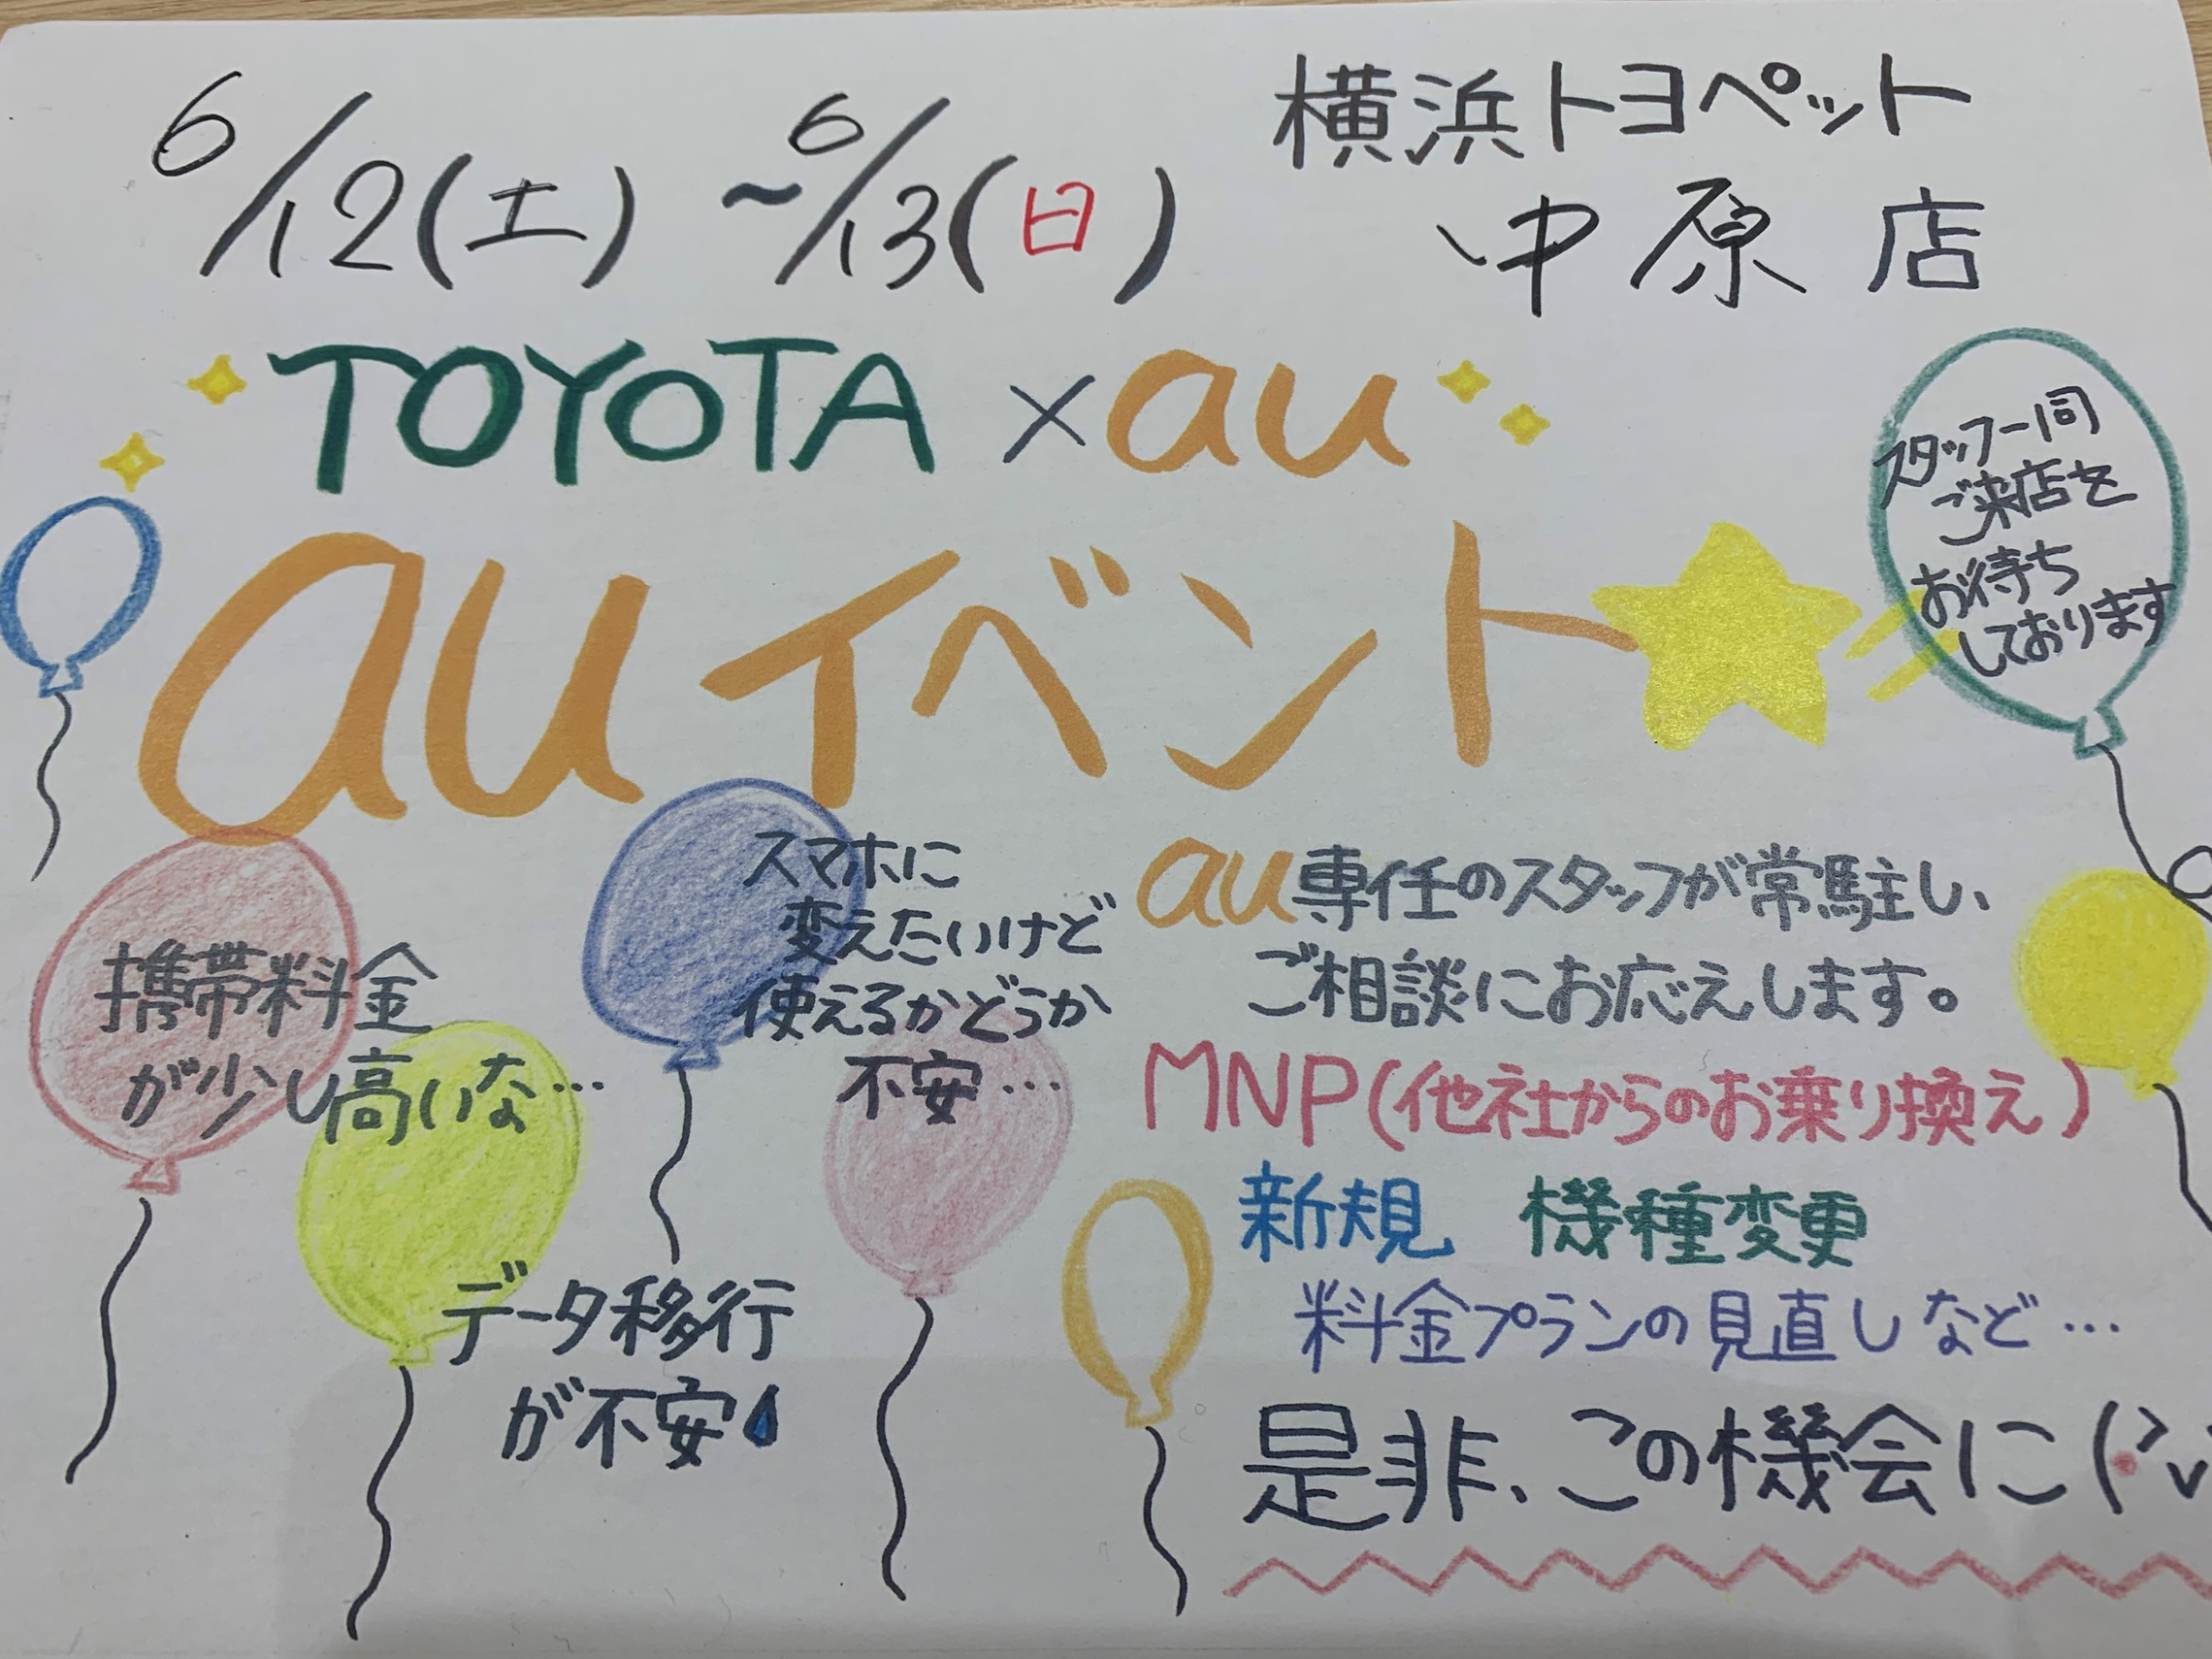 6/12(土) ~6/13(日)
横浜トヨペット
中原店
TOYOTA×au
auイベント
スタッフ一同
ご来店を
お待ち
しております
携帯料金
が少し高いな…
スマホに
変えたいけど
使えるかどうか
不安…
データ移行
が不安
au専任のスタッフが常駐し、
ご相談にお応えします。
MNP(他社からのお乗り換え)
新規 機種変更
料金プランの見直しなど…
是非、この機会に(